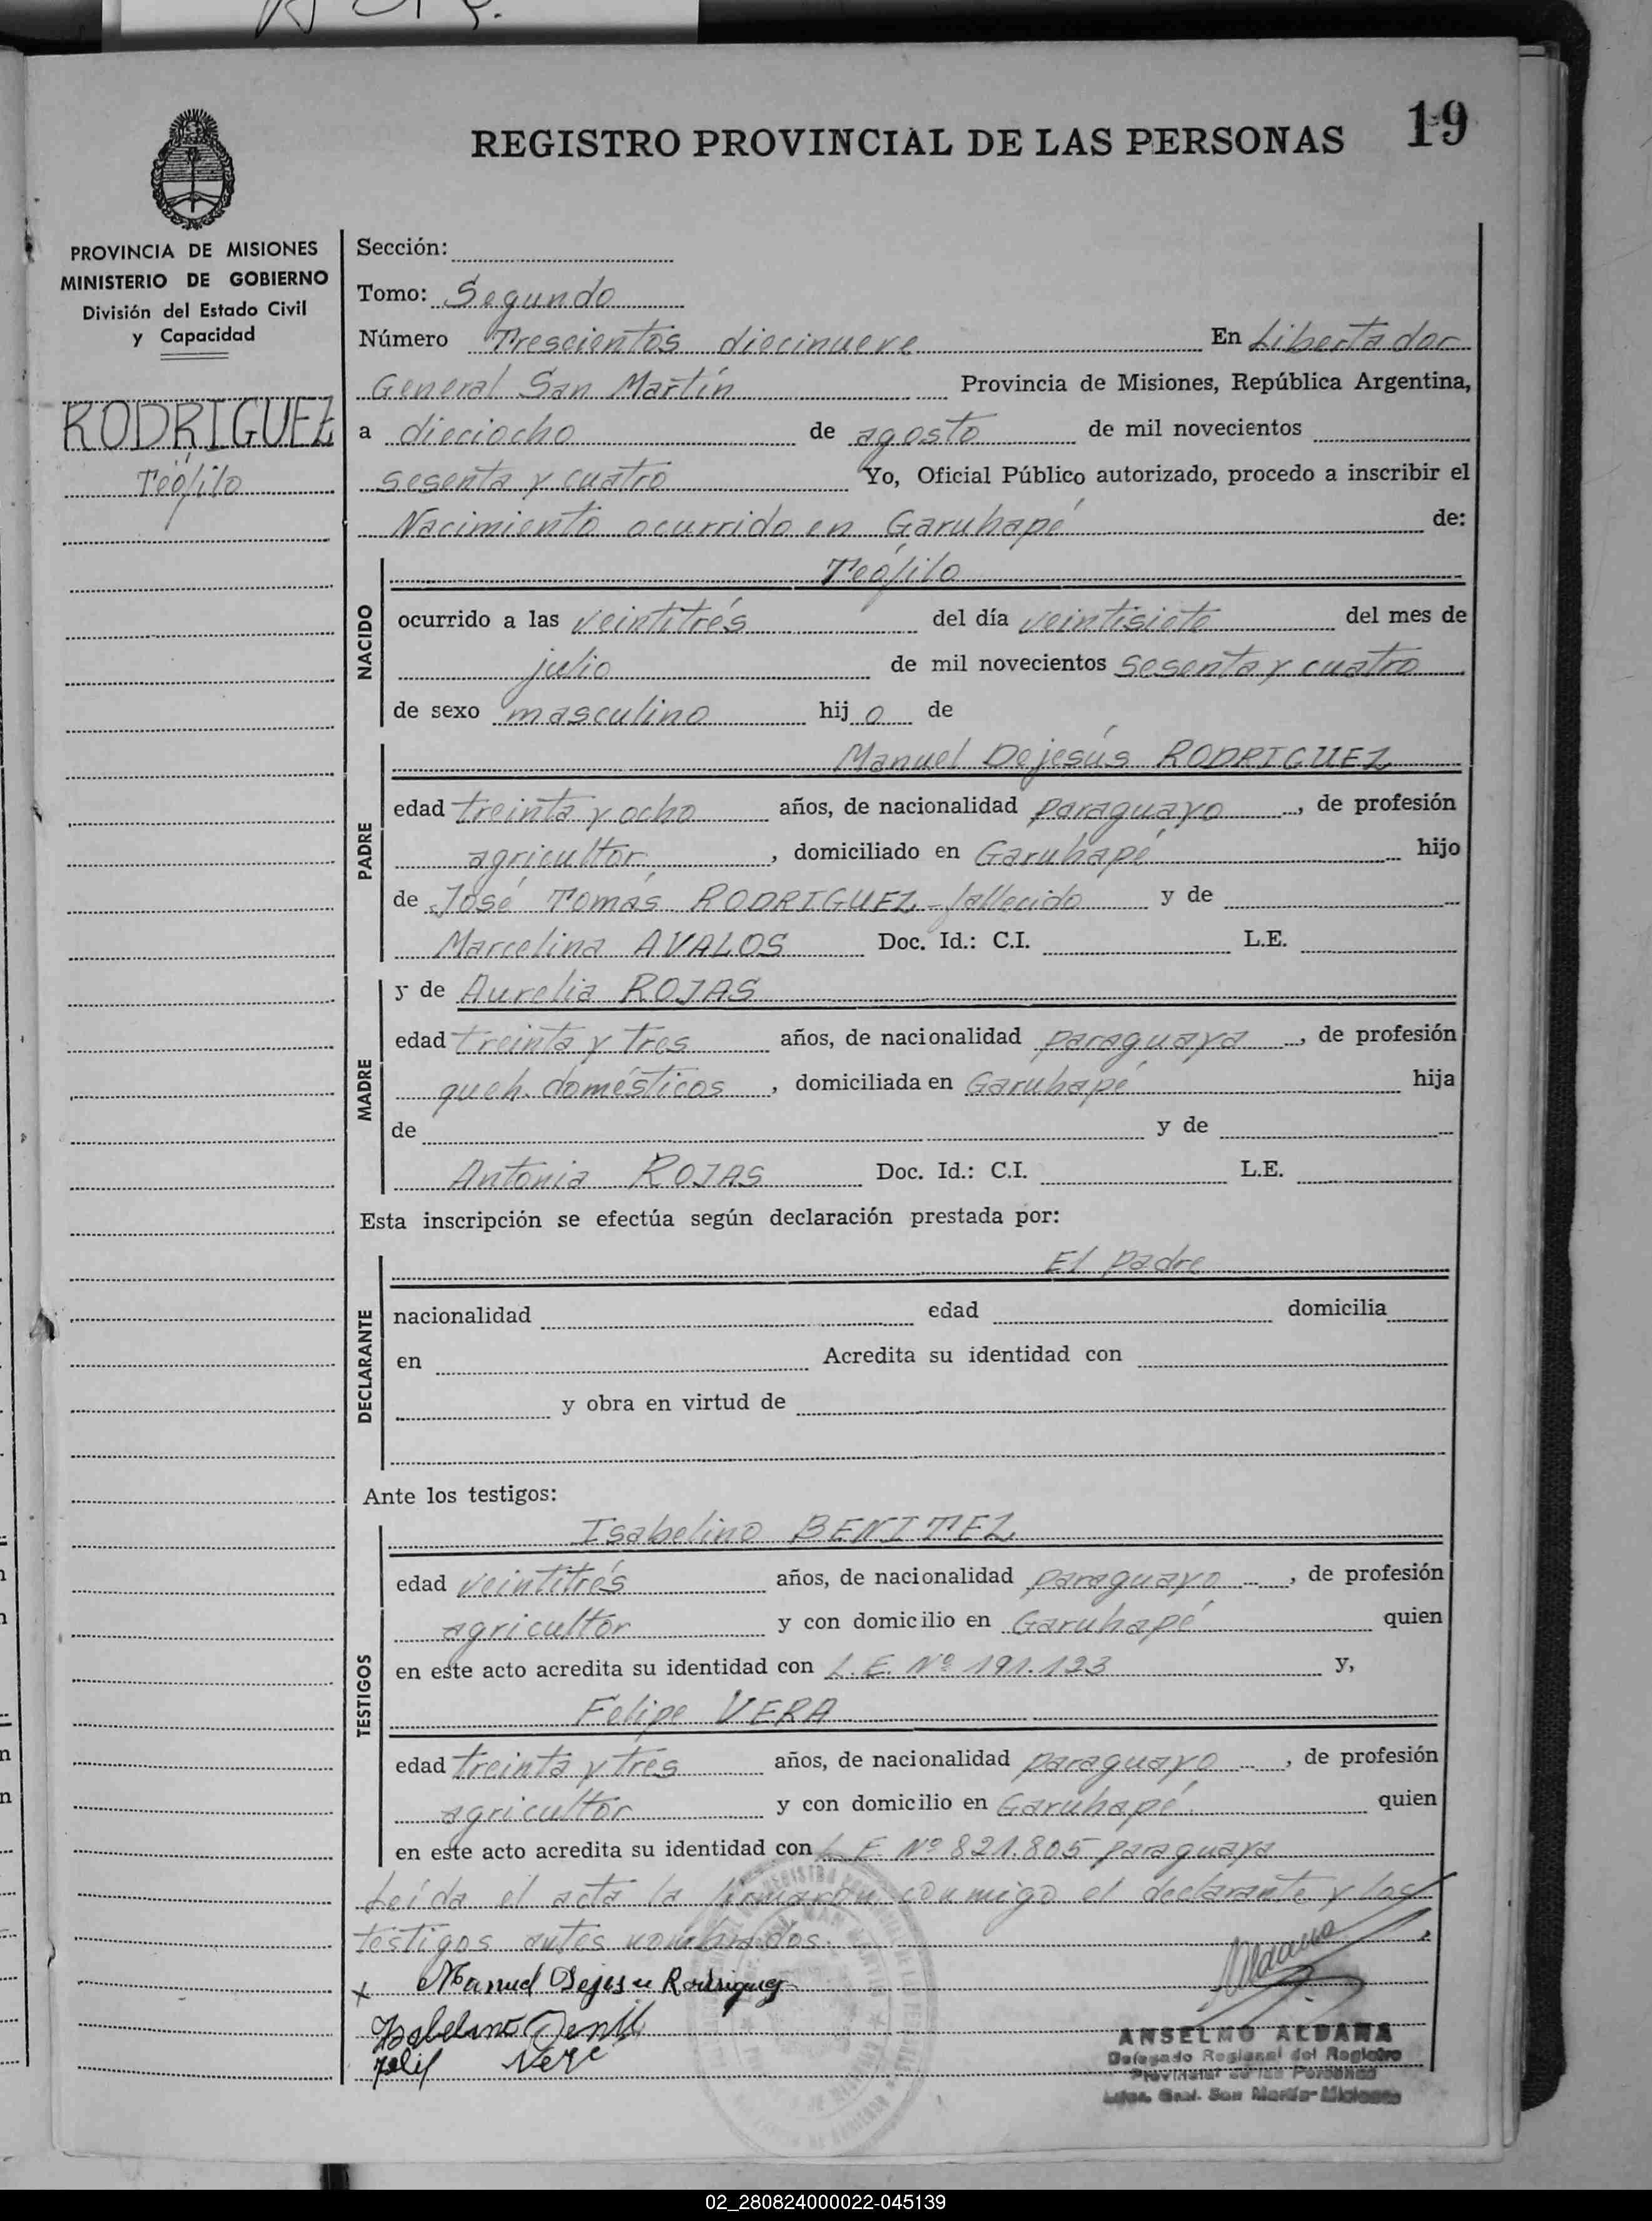 REGISTRO PROVINCIAL DE LAS PERSONAS 19
PROVINCIA DE MISIONES
MINISTERIO DE GOBIERNO
División del Estado Civil
y Capacidad
RODRIGUEZ
Teófilo
Sección:
Tomo: Segundo
Número Trescientos diecinueve En Libertador
General San Martín Provincia de Misiones, República Argentina,
a dieciocho de agosto de mil novecientos
sesenta y cuatro Yo, Oficial Público autorizado, procedo a inscribir el
Nacimiento ocurrido en Garuhapé de:
NACIDO
Teófilo
ocurrido a las veintitrés del día veintisiete del mes de
julio de mil novecientos sesenta y cuatro
de sexo masculino hij o de
PADRE
Manuel Dejesús RODRIGUEZ
edad treinta y ocho años, de nacionalidad paraguayo, de profesión
agricultor, domiciliado en Garuhapé hijo
de José Tomás RODRIGUEZ - fallecido y de
Marcelina AVALOS Doc. Id.: C.I. L.E.
MADRE
y de Aurelia ROJAS
edad treinta y tres años, de nacionalidad paraguaya, de profesión
queh. domésticos, domiciliada en Garuhapé hija
de y de
Antonia ROJAS Doc. Id.: C.I. L.E.
Esta inscripción se efectúa según declaración prestada por:
DECLARANTE
El padre
nacionalidad edad domicilia
en Acredita su identidad con
y obra en virtud de
Ante los testigos:
TESTIGOS
Isabelino BENITEZ
edad veintitrés años, de nacionalidad paraguayo, de profesión
agricultor y con domicilio en Garuhapé quien
en este acto acredita su identidad con L.E. Nº 191.123 y,
Felipe VERA
edad treinta y tres años, de nacionalidad paraguayo, de profesión
agricultor y con domicilio en Garuhapé. quien
en este acto acredita su identidad con L.E. Nº 821.805 paraguaya
Leída el acta la firmaron conmigo el declarante y los
testigos antes nombrados.
x Manuel Dejesu Rodriguez
Aldana
Vera
ANSELMO ALDANA
Delegado Regional del Registro
Provincial de las Personas
Ldor. Gral. San Martín-Misiones
02_280824000022-045139